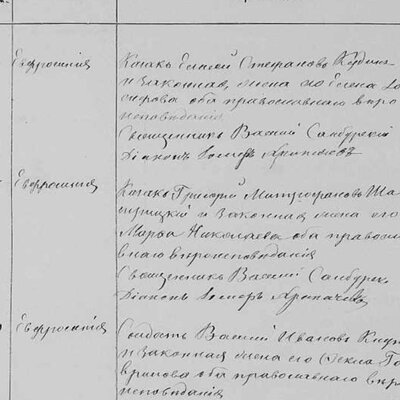 Евфросинія
Козакъ Елисей Стефановъ
и законная жена его Елена
оба православнаго вѣро
исповѣданія
Священникъ Василій Самбурскій
Діаконъ
Евфросинія
Козакъ Григорій Митрофановъ Ша
и законная жена его
Марѳа Николаева оба правосла
внаго вѣроисповѣданія
Священникъ Василій Самбурск
Діаконъ
Евфросинія
Солдатъ Василій Ивановъ
и законная жена его Ѳекла Га
врилова оба православнаго вѣро
исповѣданія